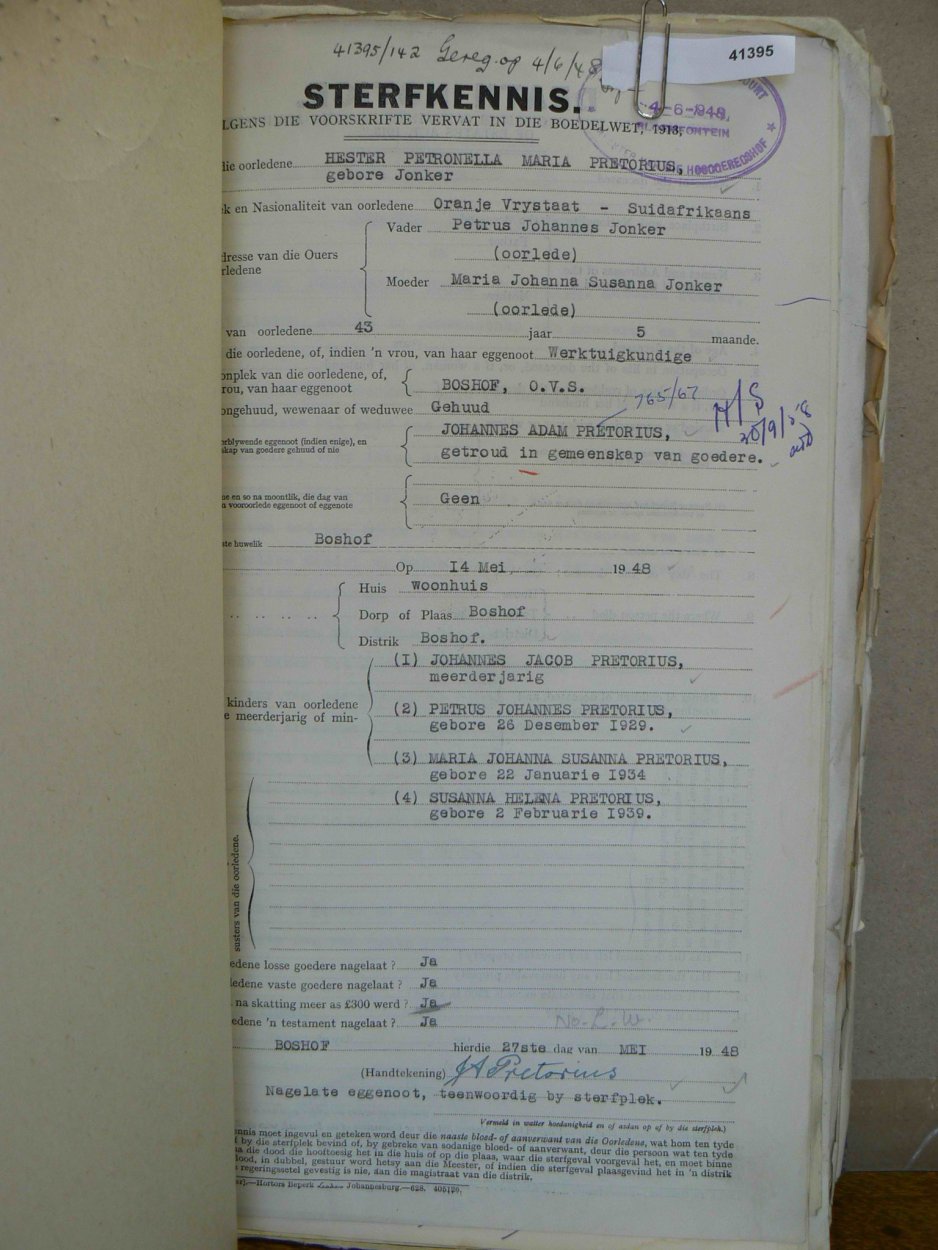 41395/142 Gereg. op 4/6/48
41395
STERFKENNIS.
4-6-1948
BLOEMFONTEIN
LGENS DIE VOORSKRIFTE VERVAT IN DIE BOEDELWET, 1913,
HOOGGEREGSHOF
die oorledene HESTER PETRONELLA MARIA PRETORIUS,
gebore Jonker
k en Nasionaliteit van oorledene Oranje Vrystaat - Suidafrikaans
Vader Petrus Johannes Jonker
dresse van die Ouers (oorlede)
rledene
Moeder Maria Johanna Susanna Jonker
(oorlede)
van oorledene 43 jaar 5 maande.
die oorledene, of, indien 'n vrou, van haar eggenoot Werktuigkundige
onplek van die oorledene, of,
rou, van haar eggenoot BOSHOF, O.V.S.
765/67
ongehuud, wewenaar of weduwee Gehuud
20/9/58
JOHANNES ADAM PRETORIUS,
orblywende eggenoot (indien enige), en
skap van goedere gehuud of nie getroud in gemeenskap van goedere.
ne en so na moontlik, die dag van Geen
n vooroorlede eggenoot of eggenote
ste huwelik Boshof
Op I4 Mei 19 48
Huis Woonhuis
Dorp of Plaas Boshof
Distrik Boshof.
(I) JOHANNES JACOB PRETORIUS,
meerderjarig
kinders van oorledene (2) PETRUS JOHANNES PRETORIUS,
e meerderjarig of min- gebore 26 Desember I929.
(3) MARIA JOHANNA SUSANNA PRETORIUS,
gebore 22 Januarie I934
(4) SUSANNA HELENA PRETORIUS,
gebore 2 Februarie I939.
susters van die oorledene.
edene losse goedere nagelaat ? Ja
ledene vaste goedere nagelaat ? Ja
na skatting meer as £300 werd ? Ja
edene 'n testament nagelaat ? Ja
No. L. W.
BOSHOF hierdie 27ste dag van MEI 19 48
(Handtekening) JA Pretorius
Nagelate eggenoot, teenwoordig by sterfplek.
Vermeld in watter hoedanigheid en of aldan op of by die sterfplek.)
nnis moet ingevul en geteken word deur die naaste bloed- of aanverwant van die Oorledene, wat hom ten tyde
f by die sterfplek bevind of, by gebreke van sodanige bloed- of aanverwant, deur die persoon wat ten tyde
a die dood die hooftoesig het in die huis of op die plaas, waar die sterfgeval voorgeval het, en moet binne
dood, in dubbel, gestuur word hetsy aan die Meester, of indien die sterfgeval plaasgevind het in 'n distrik
regeringsetel gevestig is nie, aan die magistraat van die distrik.
—Hortors Beperk Johannesburg.—628. 405120.